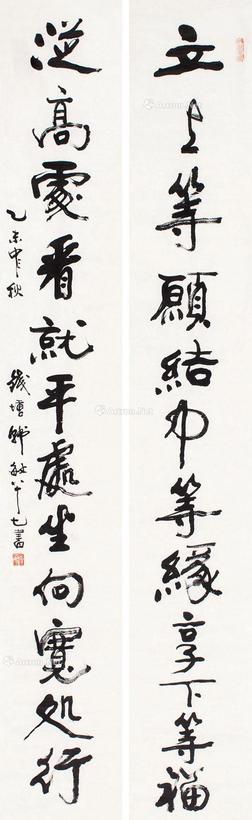 立上等願結中等緣享下等福
從高處看就平處坐向寬处行
乙未中秋
錢塘韩敏八十七書
Artron.Net